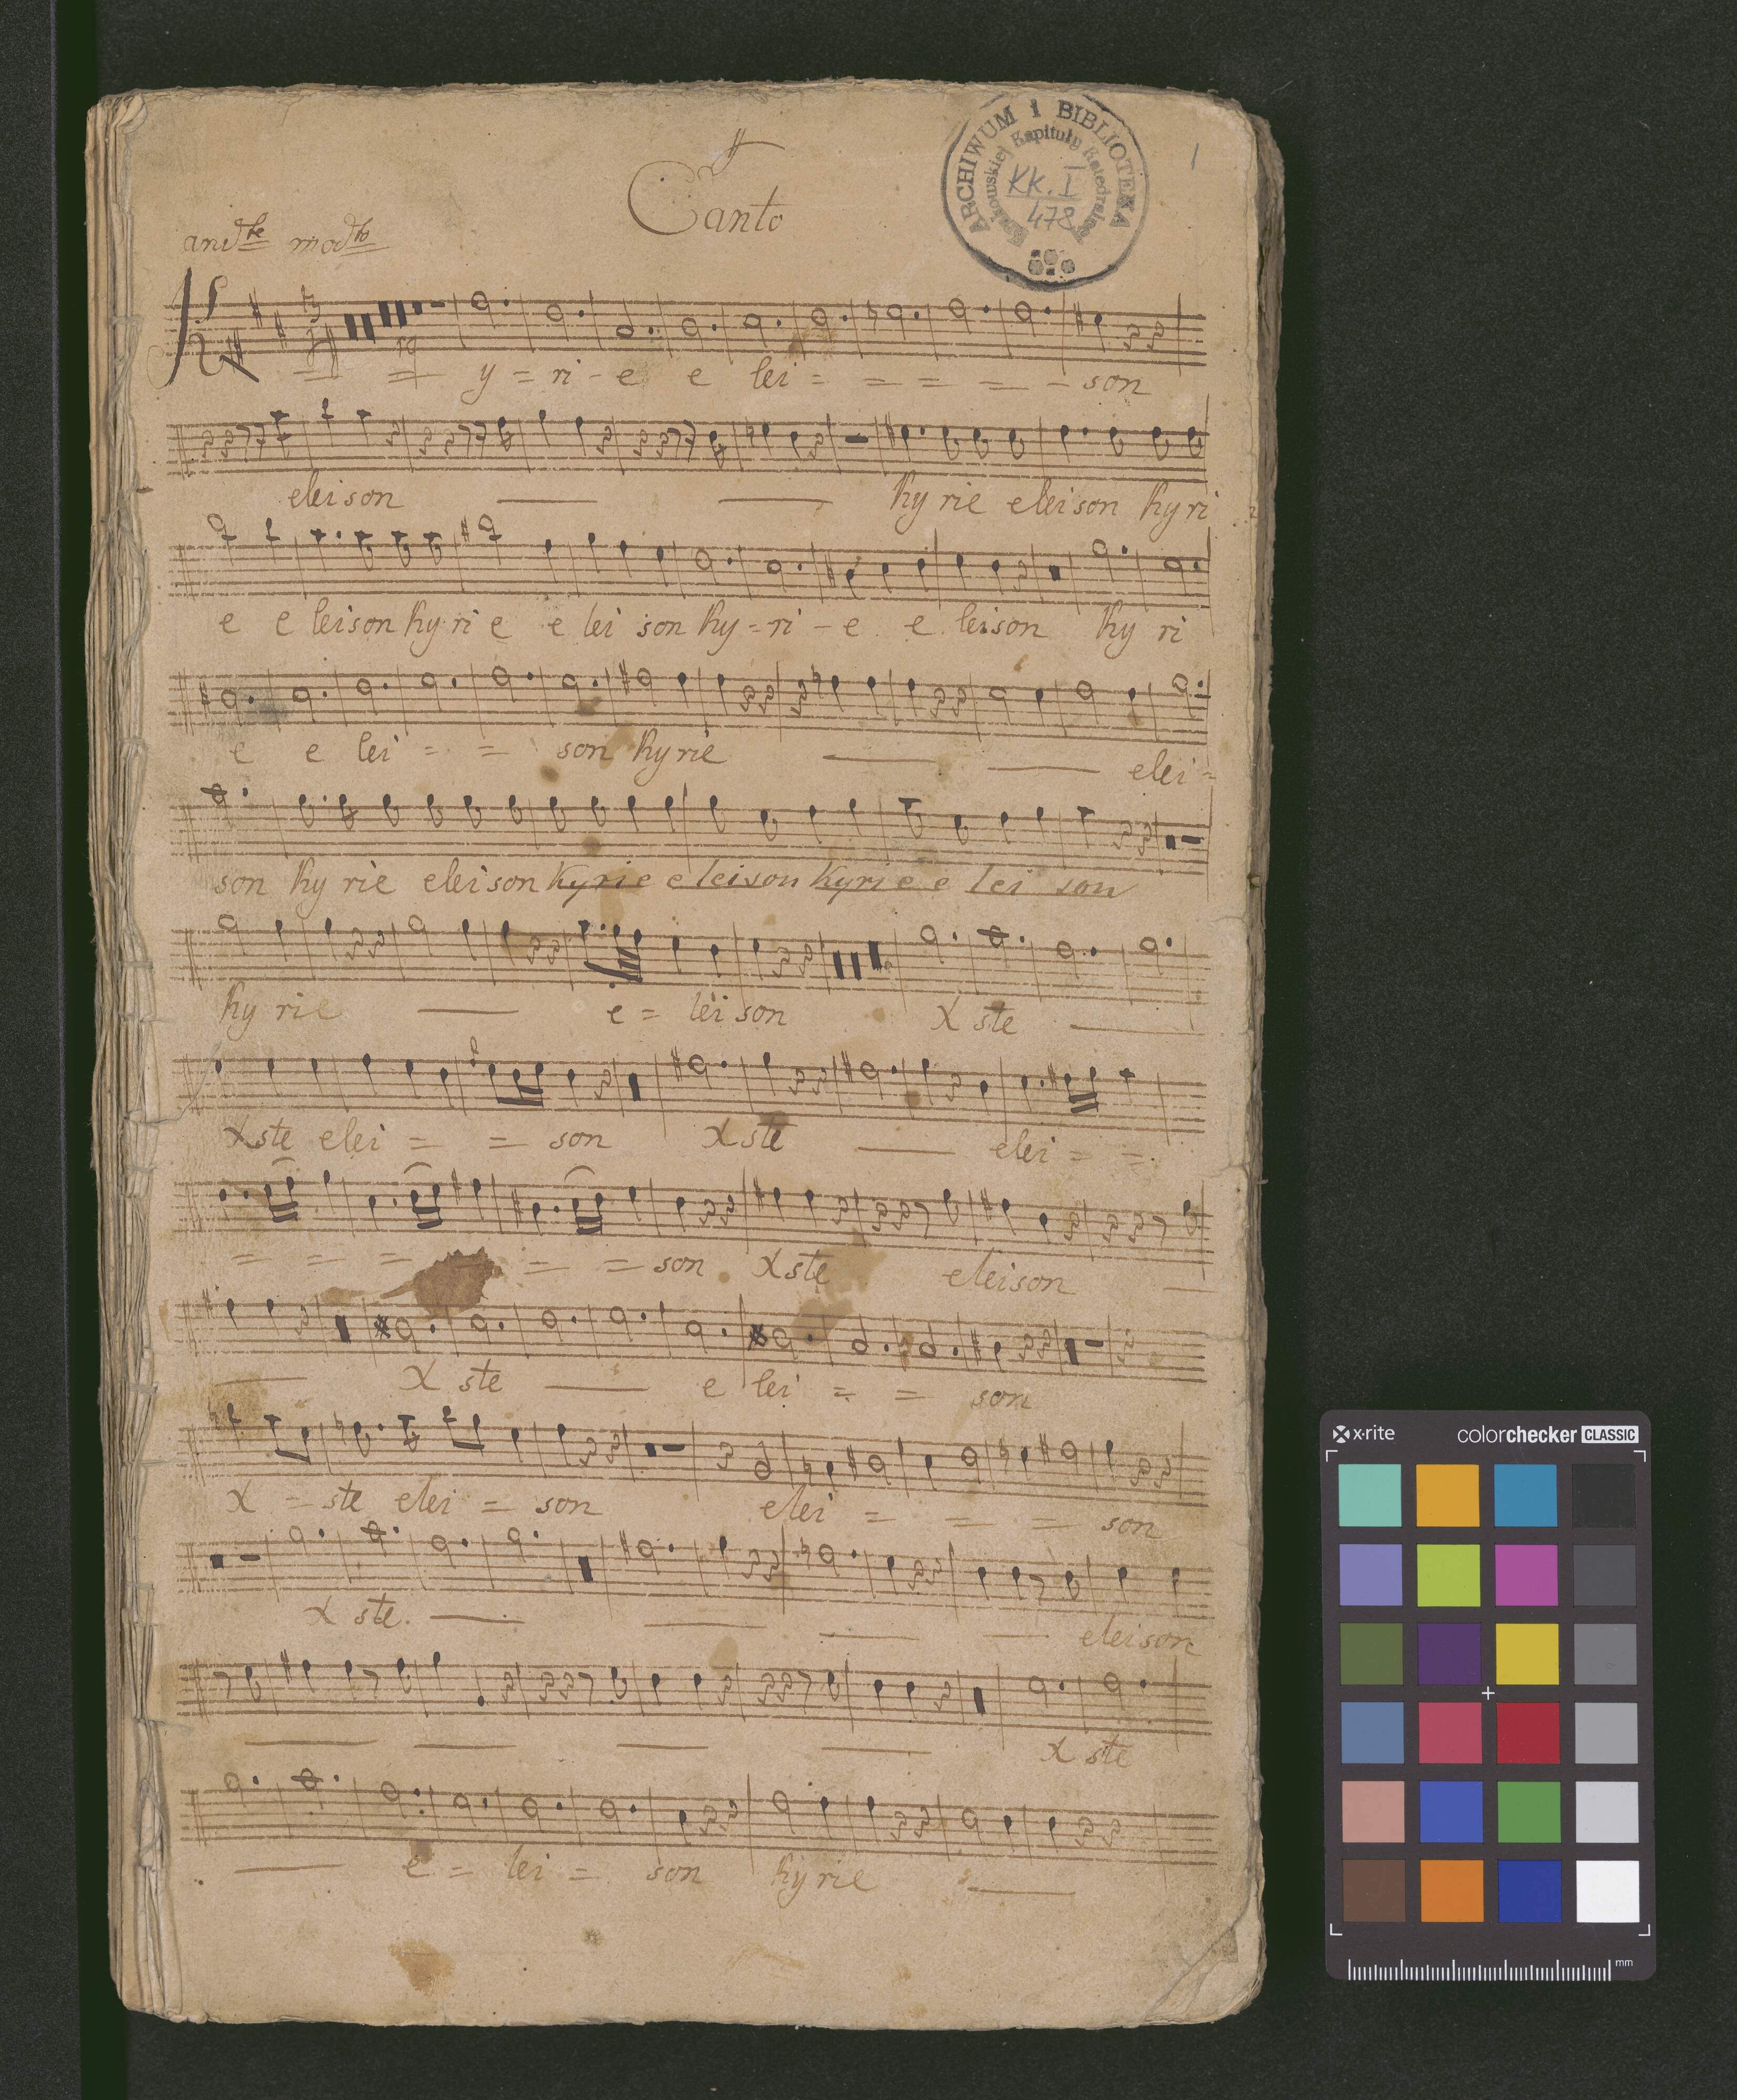 ARCHIWUM i BIBLIOTEKA
Krakowskiej Kapituły Katedralnej
KK. I
478
1
Canto
andte modto
19
Ky = ri - e e lei = = = = - son
eleison — — hy rie eleison hy ri
e e leison hy ri e e lei son hy = ri - e e leison hy ri
e e lei = = son hy rie — — elei =
son hy rie eleison kyrie eleison kyrie e lei son
hy rie — e = lei son X ste —
Xste elei = = son Xste — elei = =
= = = = = son Xste eleison —
— X ste — e lei = = son
X = ste elei = son elei = = = son
X ste — — — — eleison
— — — — X ste
— e = lei = son hy rie —
x-rite colorchecker CLASSIC
mm